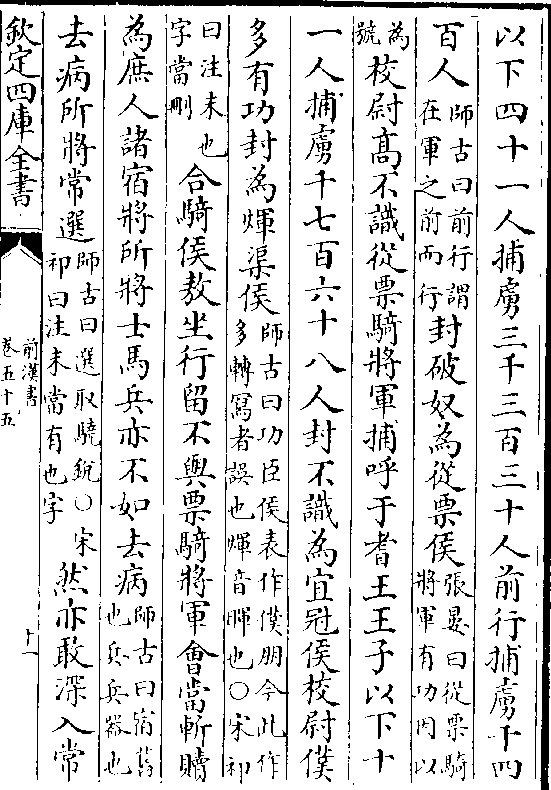 以下四十一人捕虜三千三百三十人前行捕虜千四
百人師古曰前行謂在軍之前而行封破奴為從票侯張晏曰從票騎將軍有功因以
為號校尉髙不識從票騎將軍捕呼于耆王王子以下十
一人捕虜千七百六十八人封不識為宜冠侯校尉僕
多有功封為煇渠侯師古曰功臣侯表作僕朋今此作多轉寫者誤也煇音暉也○宋祁
曰注末也字當刪合騎侯敖坐行留不與票騎將軍會當斬贖
為庶人諸宿將所將士馬兵亦不如去病師古曰宿舊也兵兵器也
去病所將常選師古曰選取驍銳○宋祁曰注末當有也字然亦敢深入常
欽定四庫全書
前漢書
卷五十五
十一